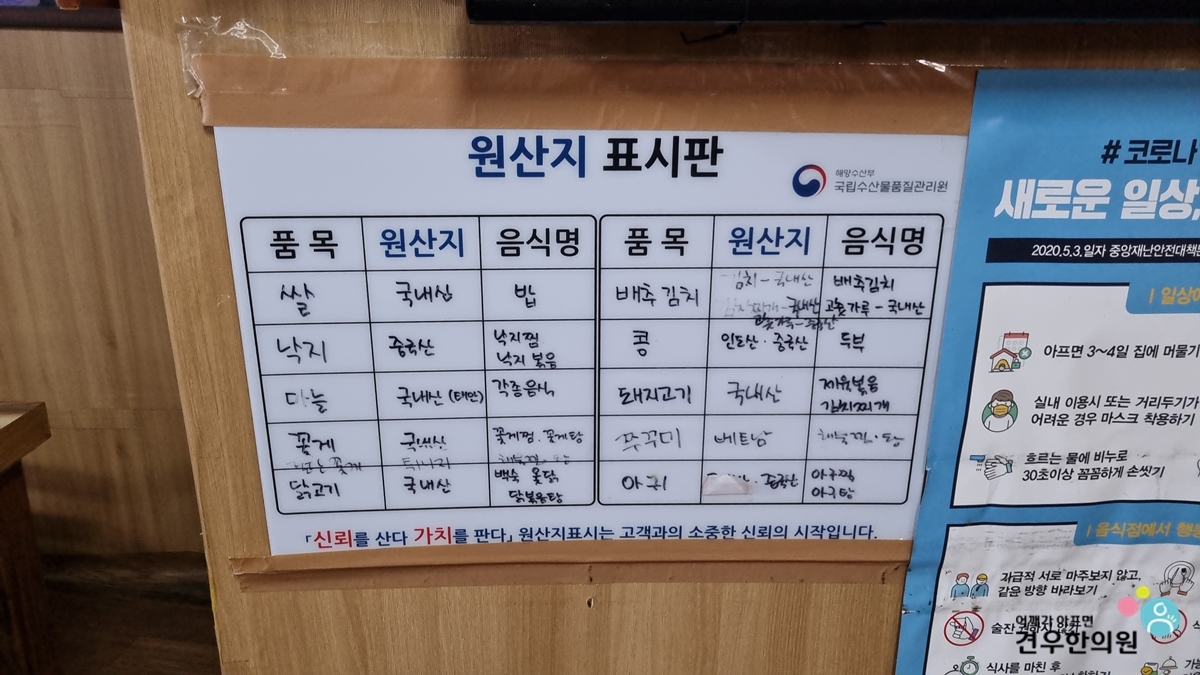 원산지 표시판
해양수산부
국립수산물품질관리원
품목 원산지 음식명
쌀 국내산 밥
낙지 중국산 낙지찜
낙지 볶음
마늘 국내산 (태안) 각종음식
꽃게 국내산 꽃게찜. 꽃게탕
닭고기 국내산 백숙 옻닭
닭볶음탕
품목 원산지 음식명
배추김치 김치-국내산 배추김치
국내산 고춧가루-국내산
고춧가루-중국산
콩 인도산·중국산 두부
돼지고기 국내산 제육볶음
김치찌개
쭈꾸미 베트남 해물찜·탕
아귀 중국산 아구찜
아구탕
「신뢰를 산다 가치를 판다」 원산지표시는 고객과의 소중한 신뢰의 시작입니다.
#코로나
새로운 일상
2020.5.3.일자 중앙재난안전대책본
일상에
아프면 3~4일 집에 머물기
실내 이용시 또는 거리두기가
어려운 경우 마스크 착용하기
흐르는 물에 비누로
30초이상 꼼꼼하게 손씻기
음식점에서 행동
가급적 서로 마주보지 않고,
같은 방향 바라보기
술잔
식사를 마친 후
어깨가 아프면
견우한의원